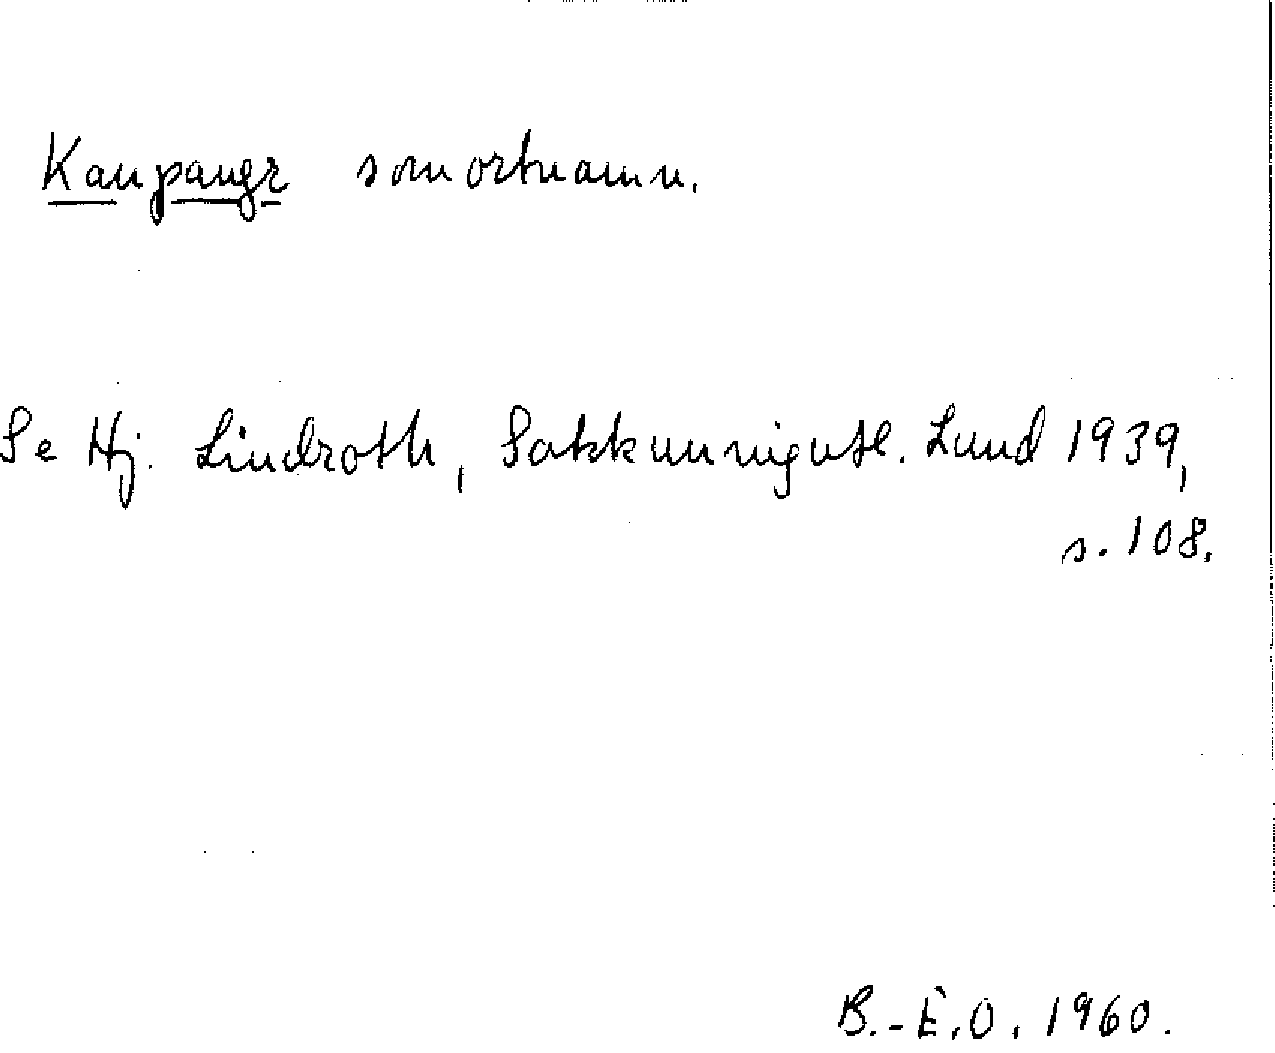 Kaupangr som ortnamn.
Se Hj. Lindroth, Sakkunnigutl. Lund 1939,
s. 108.
B.-E.O. 1960.